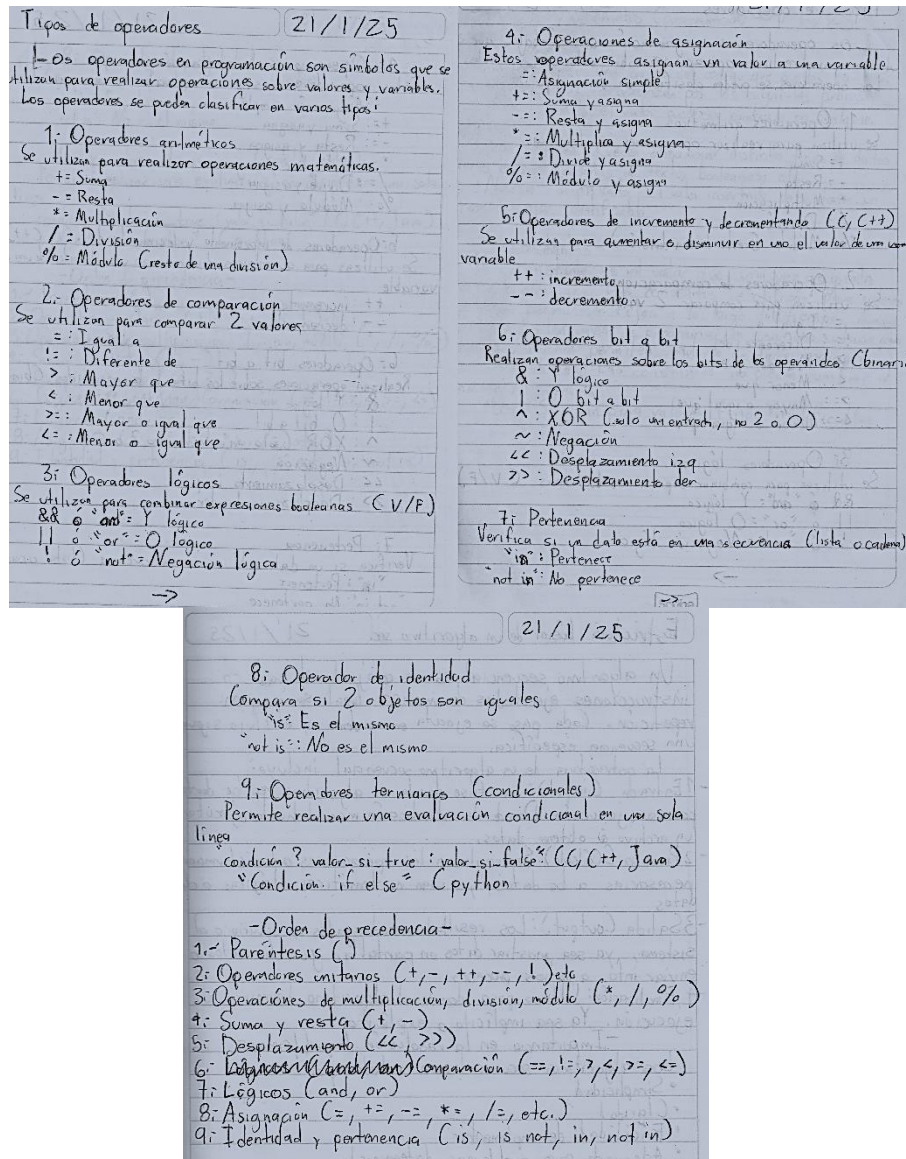 Tipos de operadores 21/1/25
Los operadores en programación son símbolos que se
utilizan para realizar operaciones sobre valores y variables.
Los operadores se pueden clasificar en varios tipos:
1.- Operadores aritméticos
Se utilizan para realizar operaciones matemáticas.
+ = Suma
- = Resta
* = Multiplicación
/ = División
% = Módulo (resto de una división)
2.- Operadores de comparación
Se utilizan para comparar 2 valores
= : Igual a
!= : Diferente de
> : Mayor que
< : Menor que
>= : Mayor o igual que
<= : Menor o igual que
3.- Operadores lógicos
Se utilizan para combinar expresiones booleanas (V/F)
&& ó "and" = Y lógico
|| ó "or" = O lógico
! ó "not" = Negación lógica
→
4.- Operaciones de asignación
Estos operadores asignan un valor a una variable
= : Asignación simple
+= : Suma y asigna
-= : Resta y asigna
*= : Multiplica y asigna
/= : Divide y asigna
%= : Módulo y asigna
5.- Operadores de incremento y decrementando (C, C++)
Se utilizan para aumentar o disminuir en uno el valor de una
variable
++ : incremento
-- : decremento
6.- Operadores bit a bit
Realizan operaciones sobre los bits de los operandos (binari
& : Y lógico
| : O bit a bit
^ : XOR (solo un entrada, no 2 o 0)
~ : Negación
<< : Desplazamiento izq
>> : Desplazamiento der
7.- Pertenencia
Verifica si un dato está en una secuencia (lista o cadena)
"in" : Pertenece
"not in" : No pertenece
→
21/1/25
8.- Operador de identidad
Compara si 2 objetos son iguales
"is": Es el mismo
"not is": No es el mismo
9.- Operadores ternianos (condicionales)
Permite realizar una evaluación condicional en una sola
línea
"condición ? valor_si_true : valor_si_false" (C, C++, Java)
"Condición if else" (python
-Orden de precedencia-
1.- Paréntesis ()
2.- Operadores unitarios (+, -, ++, --, !) etc
3.- Operaciónes de multiplicación, división, módulo (*, /, %)
4.- Suma y resta (+, -)
5.- Desplazamiento (<<, >>)
6.- Comparación (==, !=, >, <, >=, <=)
7.- Lógicos (and, or)
8.- Asignación (=, +=, -=, *=, /=, etc.)
9.- Identidad y pertenencia (is, is not, in, not in)